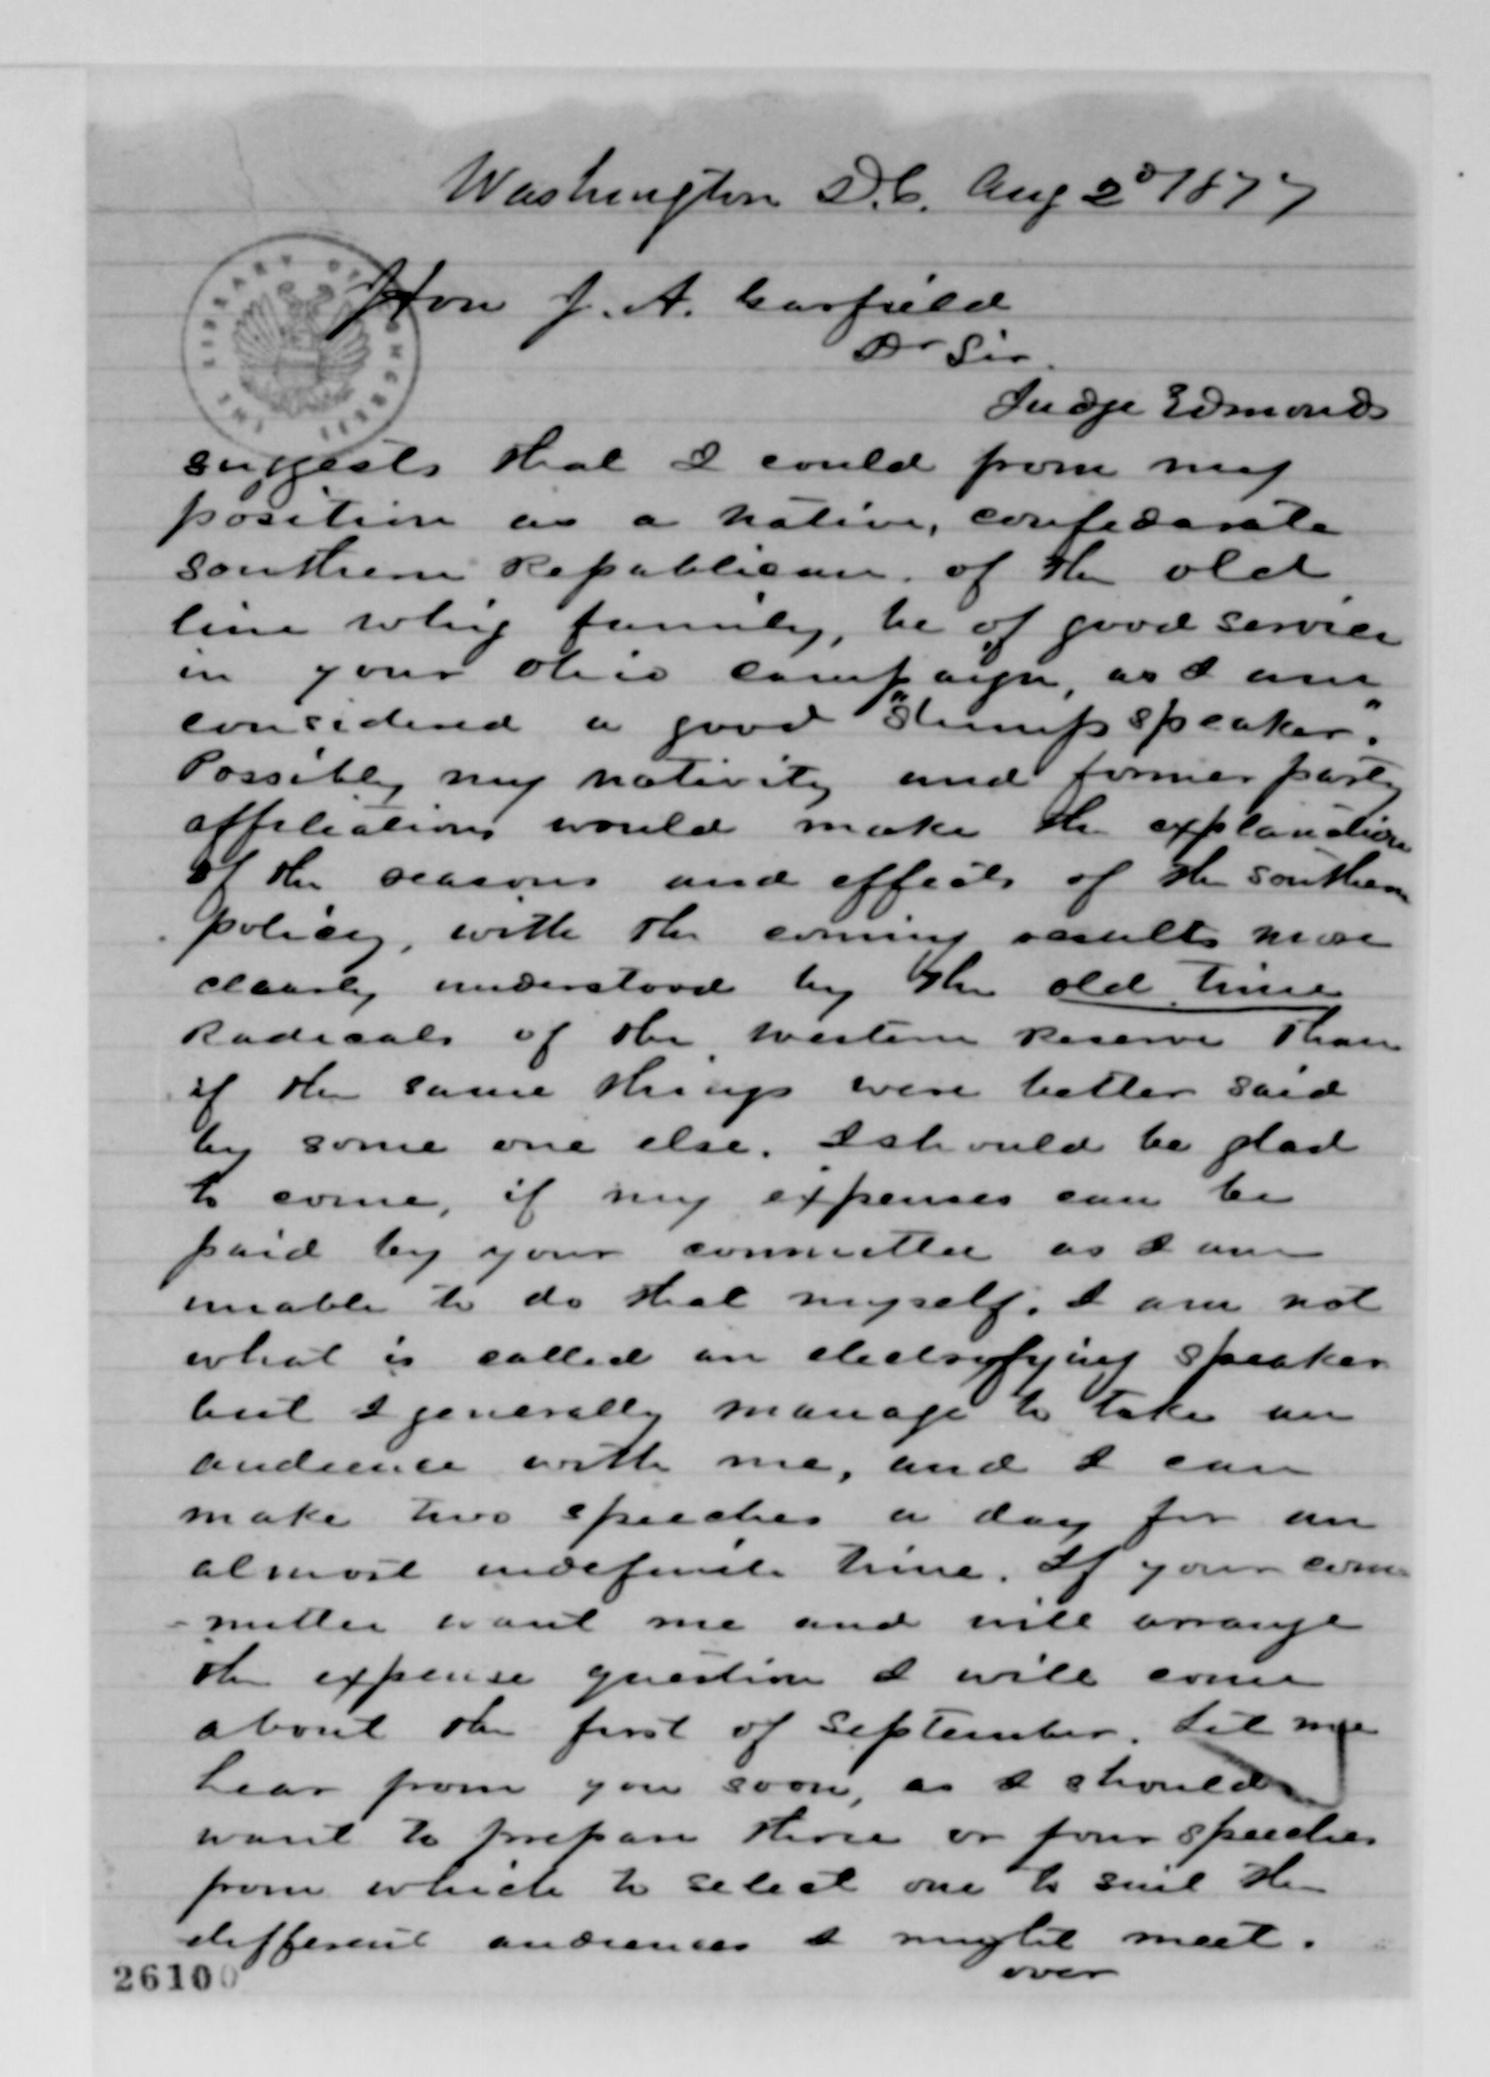 Washington D.C. Aug 2d 1877
THE LIBRARY OF CONGRESS
Hon J. A. Garfield
Dr Sir.
Judge Edmonds
suggests that I could from my
position as a native, confedarate
southern Republican of the old
line whig family, be of good service
in your Ohio campaign, as I am
considered a good "Stump speaker".
Possibly my nativity and former party
affiliations would make the explanation
of the reasons and effects of the southern
policy, with the coming results more
clearly understood by the old time
Radicals of the western Reserve than
if the same things were better said
by some one else. I should be glad
to come, if my expenses can be
paid by your committee as I am
unable to do that myself. I am not
what is called an electryfying speaker
but I generally manage to take an
audience with me, and I can
make two speeches a day for an
almost indefinite time. If your com-
-mittee want me and will arrange
the expense question I will come
about the first of September. Let me
hear from you soon, as I should
want to prepare three or four speeches
from which to select one to suit the
different audiences I might meet.
over
26100